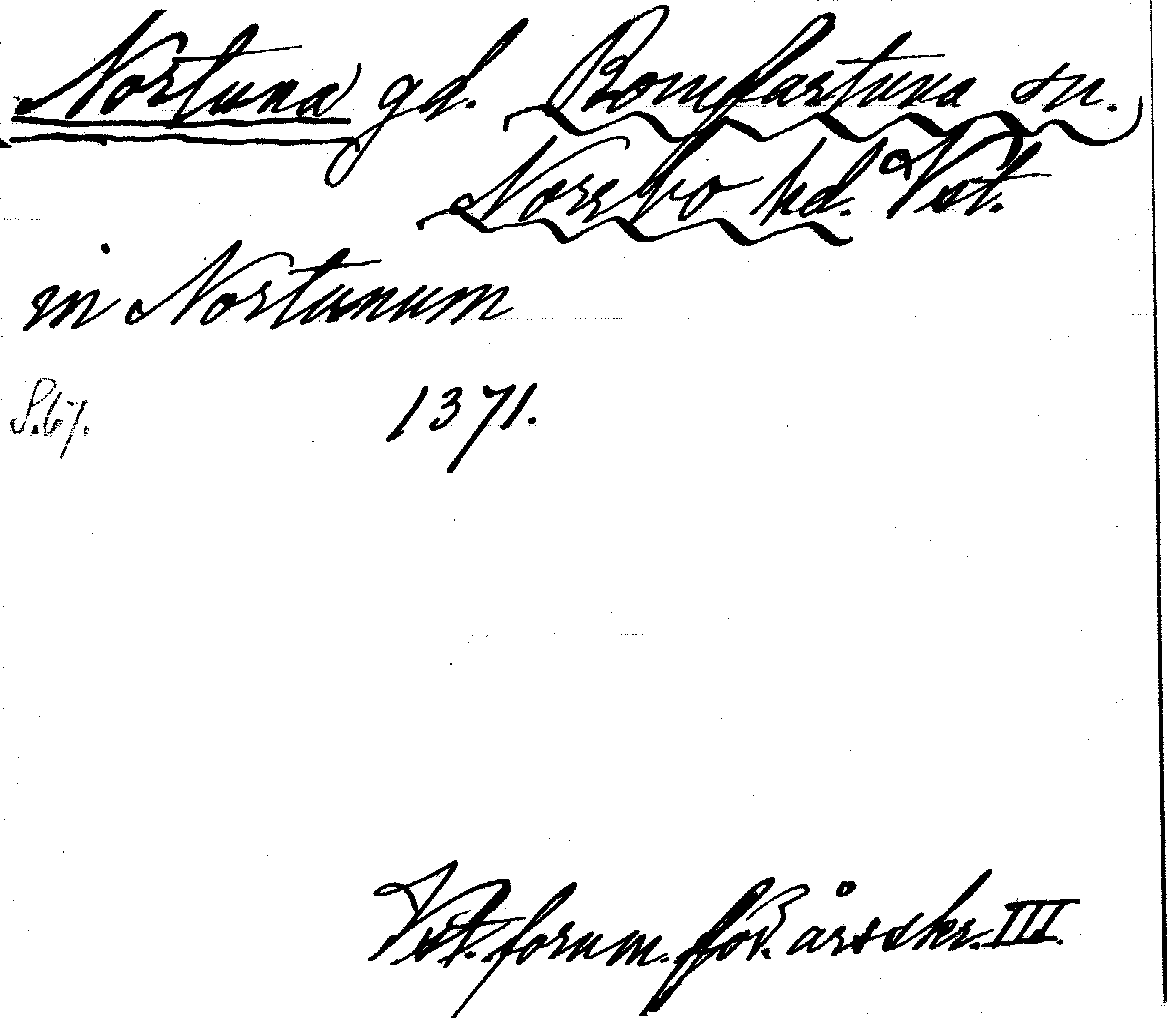 Nortuna gd. Romfartuna sn.
Norrbo hd. Vst.
in Nortunum
S. 67. 1371.
Vst. fornm.för. årsskr. III.